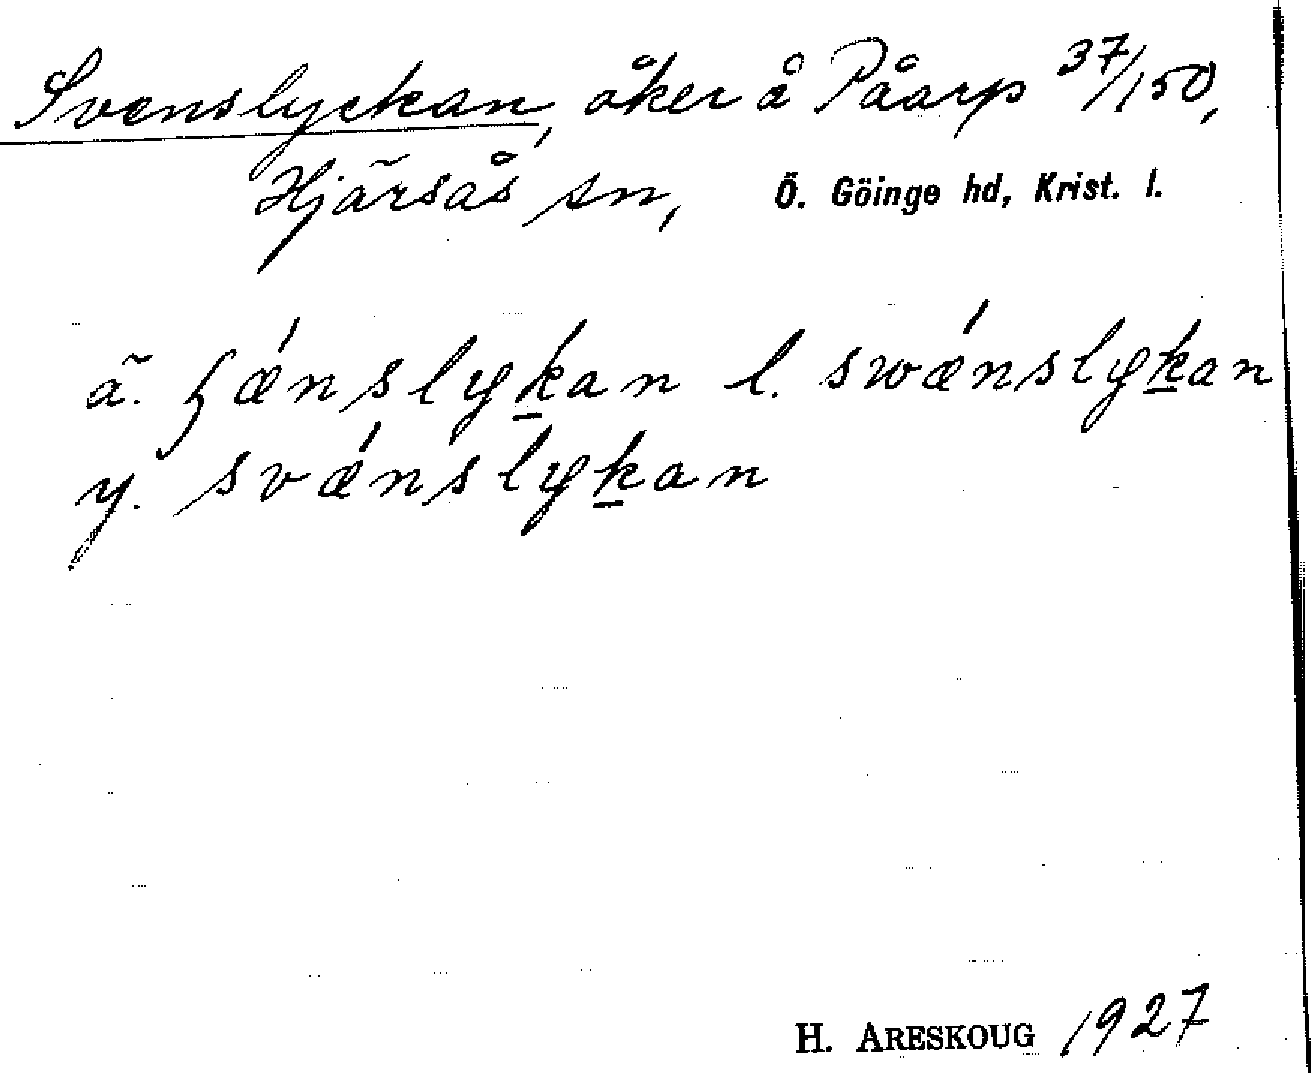 Svenslyckan, åker å Påarp 37/150,
Hjärsås sn, Ö. Göinge hd, Krist. l.
ä. ʂǽnslyḵan l. swǽnslyḵan
y. svǽnslyḵan
H. ARESKOUG 1927